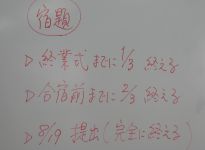 宿題
▷終業式までに1/3 終える
▷合宿前までに2/3 終える
▷8/9 提出(完全に終える)